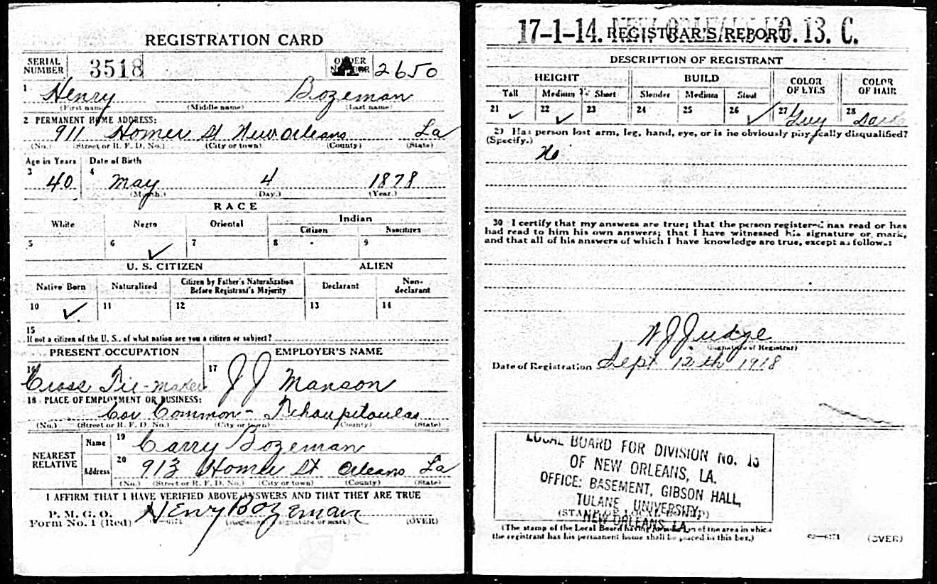 REGISTRATION CARD
SERIAL NUMBER 3518 ORDER NUMBER 2650
1 Henry Bozeman
(First name) (Middle name) (Last name)
2 PERMANENT HOME ADDRESS:
911 Homer St New Orleans La
(No.) (Street or R. F. D. No.) (City or town) (County) (State)
Age in Years Date of Birth
3 40 4 May 4 1878
(Month.) (Day.) (Year.)
RACE
White Negro Oriental Indian
Citizen Noncitizen
5 6 ✓ 7 8 9
U. S. CITIZEN ALIEN
Native Born Naturalized Citizen by Father's Naturalization Before Registrant's Majority Declarant Non-declarant
10 ✓ 11 12 13 14
15
If not a citizen of the U. S., of what nation are you a citizen or subject?
PRESENT OCCUPATION EMPLOYER'S NAME
16 Cross Tie-maker 17 J J Manson
18 PLACE OF EMPLOYMENT OR BUSINESS:
Cor Common - Tchoupitoulas
(No.) (Street or R. F. D. No.) (City or town) (County) (State)
NEAREST RELATIVE Name 19 Carry Bozeman
Address 20 913 Homer St Orleans La
(No.) (Street or R. F. D. No.) (City or town) (County) (State)
I AFFIRM THAT I HAVE VERIFIED ABOVE ANSWERS AND THAT THEY ARE TRUE
P. M. G. O.
Form No. 1 (Red) Henry Bozeman (OVER)
(Registrant's signature or mark)
17-1-14. NEW ORLEANS NO. 13. C.
REGISTRAR'S REPORT
DESCRIPTION OF REGISTRANT
HEIGHT BUILD COLOR OF EYES COLOR OF HAIR
Tall Medium Short Slender Medium Stout
21 ✓ 22 ✓ 23 24 25 26 ✓ 27 28
29 Has person lost arm, leg, hand, eye, or is he obviously physically disqualified?
(Specify.)
No
30 I certify that my answers are true; that the person registered has read or has
had read to him his own answers; that I have witnessed his signature or mark,
and that all of his answers of which I have knowledge are true, except as follows:
W J Judge
(Signature of Registrar)
Date of Registration Sept 12th 1918
LOCAL BOARD FOR DIVISION No. 13
OF NEW ORLEANS, LA.
OFFICE: BASEMENT, GIBSON HALL,
TULANE UNIVERSITY,
NEW ORLEANS, LA.
(STAMP OF LOCAL BOARD)
(The stamp of the Local Board having jurisdiction of the area in which
the registrant has his permanent home shall be placed in this box.)
(OVER)